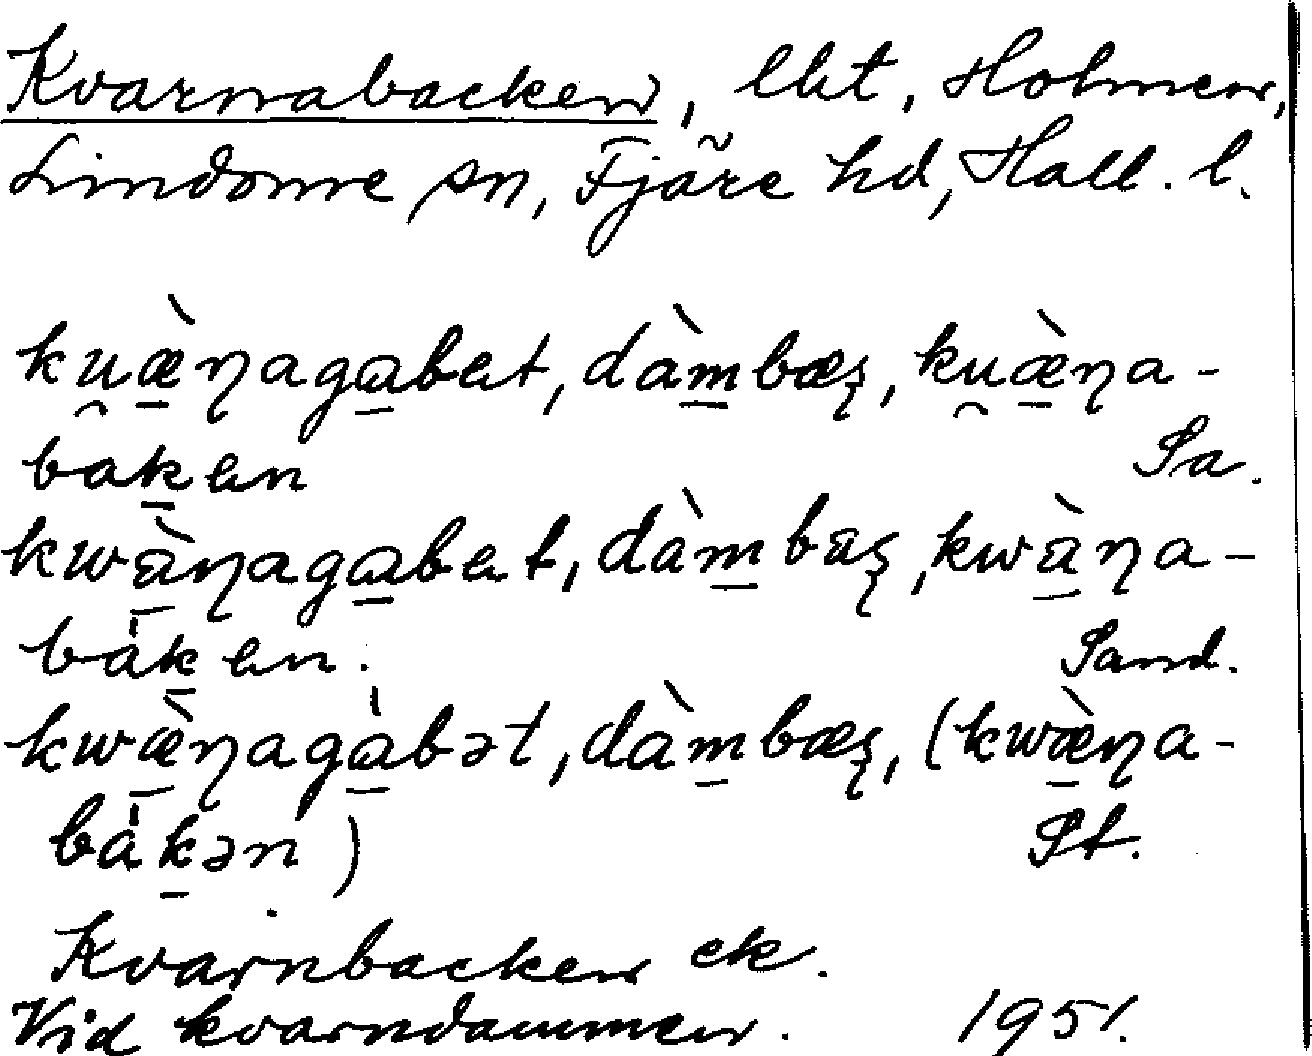 Kvarnabacken, lht, Holmen,
Lindome sn, Fjäre hd, Hall. l.
ku̯æ̠̀ɳaga̠bɐt, dàm̠bæʂ, ku̯æ̠̀ɳa-
bak̠ɐn Sa.
kwà̠ɳaga̠bɐt, dàm̠baʂ, kwà̠ɳa-
bàk̠ɐn. Sand.
kwæ̠̀ɳagà̠bət, dàm̠bæʂ, (kwæ̠̀ɳa-
bàk̠ən) St.
Kvarnbacken ek.
Vid kvarndammen. 1951.